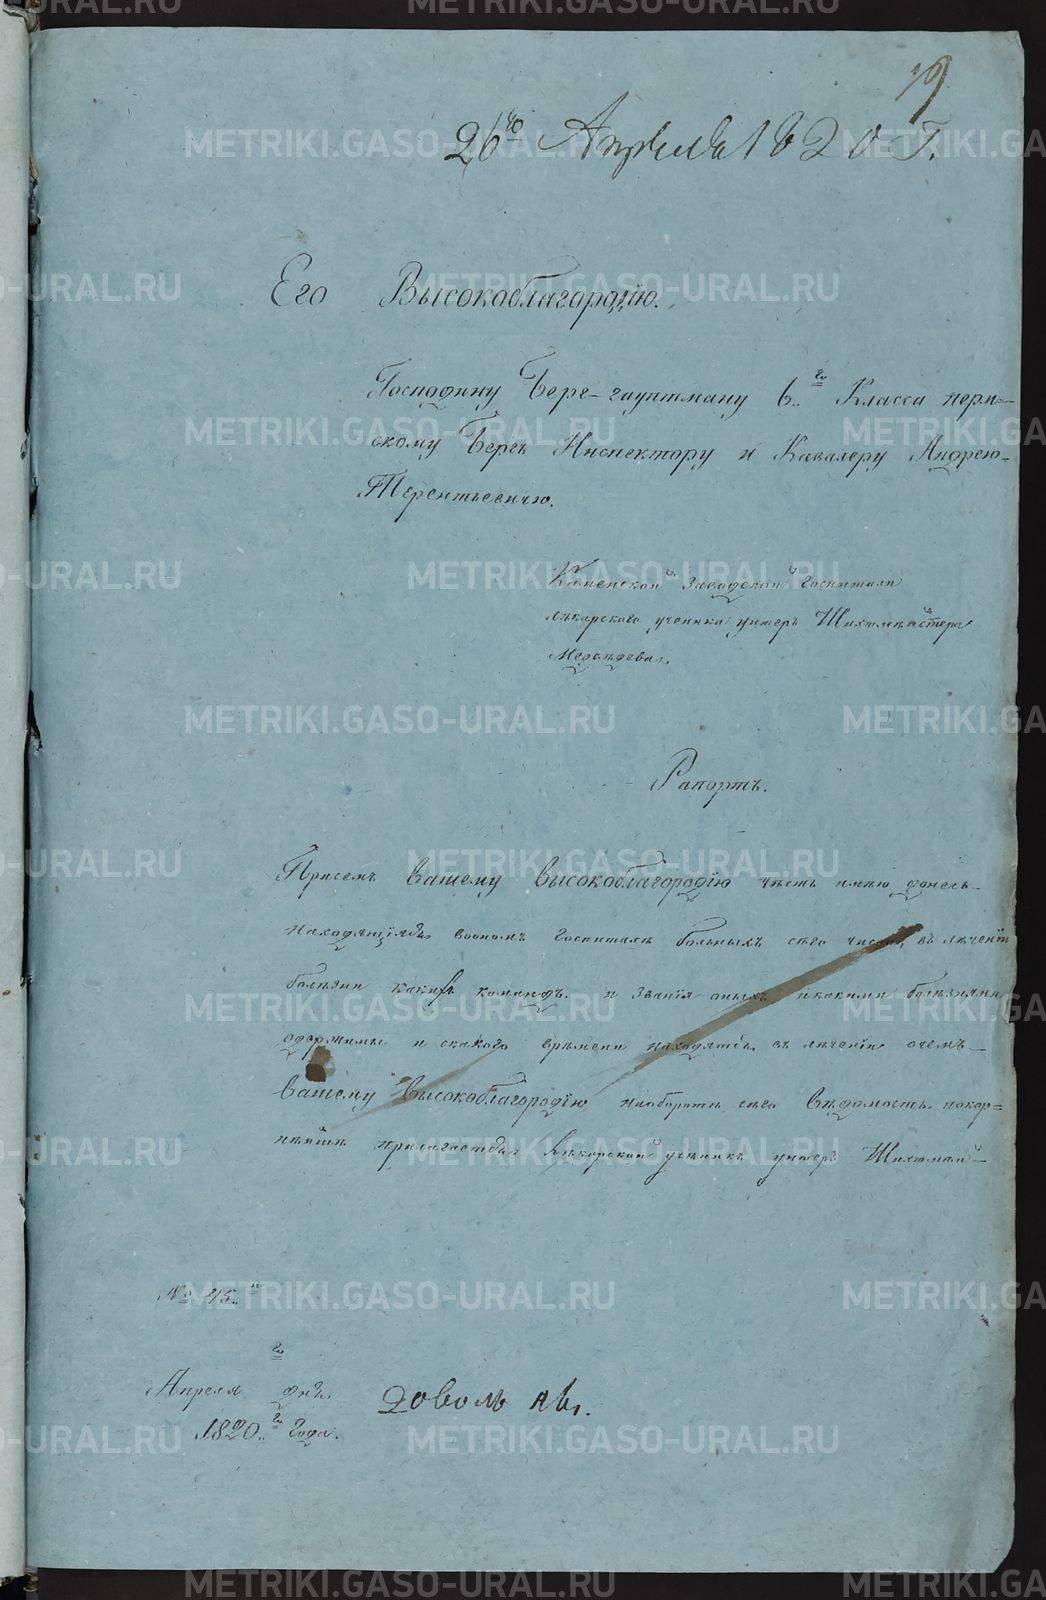 19
26го Апреля 1820 Г.
Его Высокоблагородiю.
Господину Берг-гауптману 6.го Класса перм-
скому Бергъ Инспектору и Кавалеру Андрею
Терентьевичю.
Каменской Заводской госпитали
лѣкарского ученика унтеръ Шихтмейстера
Медведева.
Рапортъ.
Присемъ Вашему Высокоблагородiю честь имѣю донесть
находящiяся воономъ госпиталѣ больныхъ сего числа, въ лѣченiи
болѣзни какихъ командъ и Званiя оныхъ икакими болѣзнями
одержимы и скакого времени находятся въ лѣченiи очемъ
Вашему Высокоблагородiю наоборотѣ сего Вѣдомость покор=
нѣйше прилагается Лѣкарской ученикъ унтеръ Шихтмей-
№ 45.
Апреля го дня
1820.го Года.
METRIKI.GASO-URAL.RU